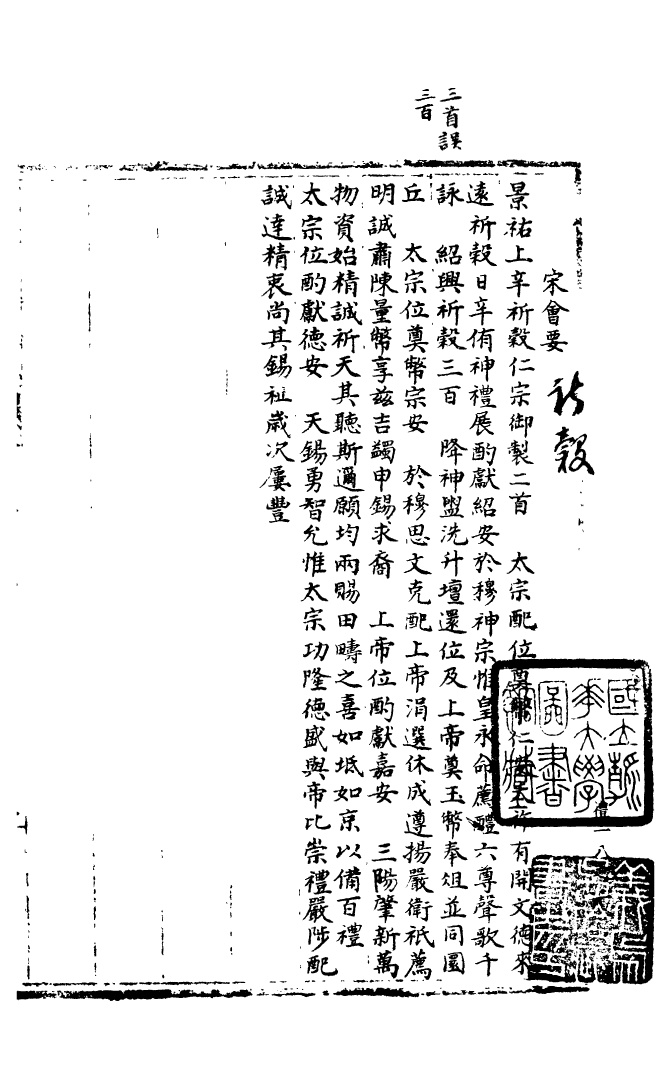 三首誤
三百
宋會要
祈穀
景祐上辛祈穀仁宗御製二首　太宗配位奠幣仁有開文德來
遠祈穀日辛侑神禮展酌獻紹安於穆神宗惟皇永命薦醴六尊聲歌千
詠　紹興祈穀三百　降神盥洗升壇還位及上帝奠玉幣奉俎並同圜
丘　太宗位奠幣宗安　於穆思文克配上帝涓選休成遵揚嚴衛祇薦
明誠肅陳量幣享茲吉蠲申錫求裔　上帝位酌獻嘉安　三陽肇新萬
物資始精誠祈天其聽斯邇願均雨賜田疇之喜如坻如京以備百禮
太宗位酌獻德安　天錫勇智允惟太宗功隆德盛與帝比崇禮嚴陟配
誠達精衷尚其錫祉歲次屢豐
禮一八
國立
華大學
圖書